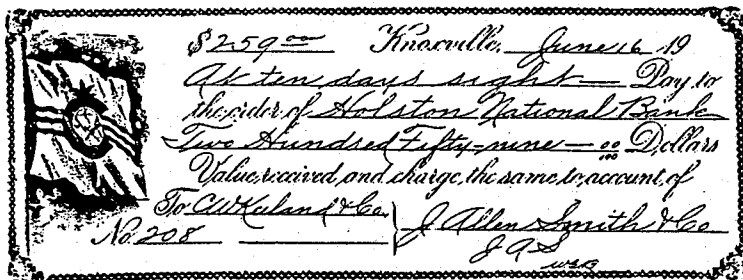 $259 00 Knoxville, June 16 19
At ten days sight — Pay to
the order of Holston National Bank
Two Hundred Fifty-nine — 00/100 Dollars
Value received and charge the same to account of
To & Co. J Allen Smith & Co
No. 208 J A S